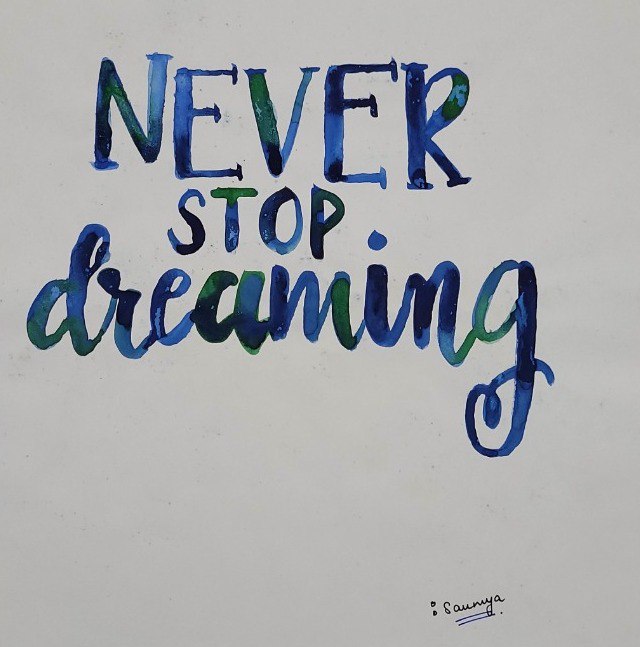 NEVER
STOP
dreaming
: Saumya.